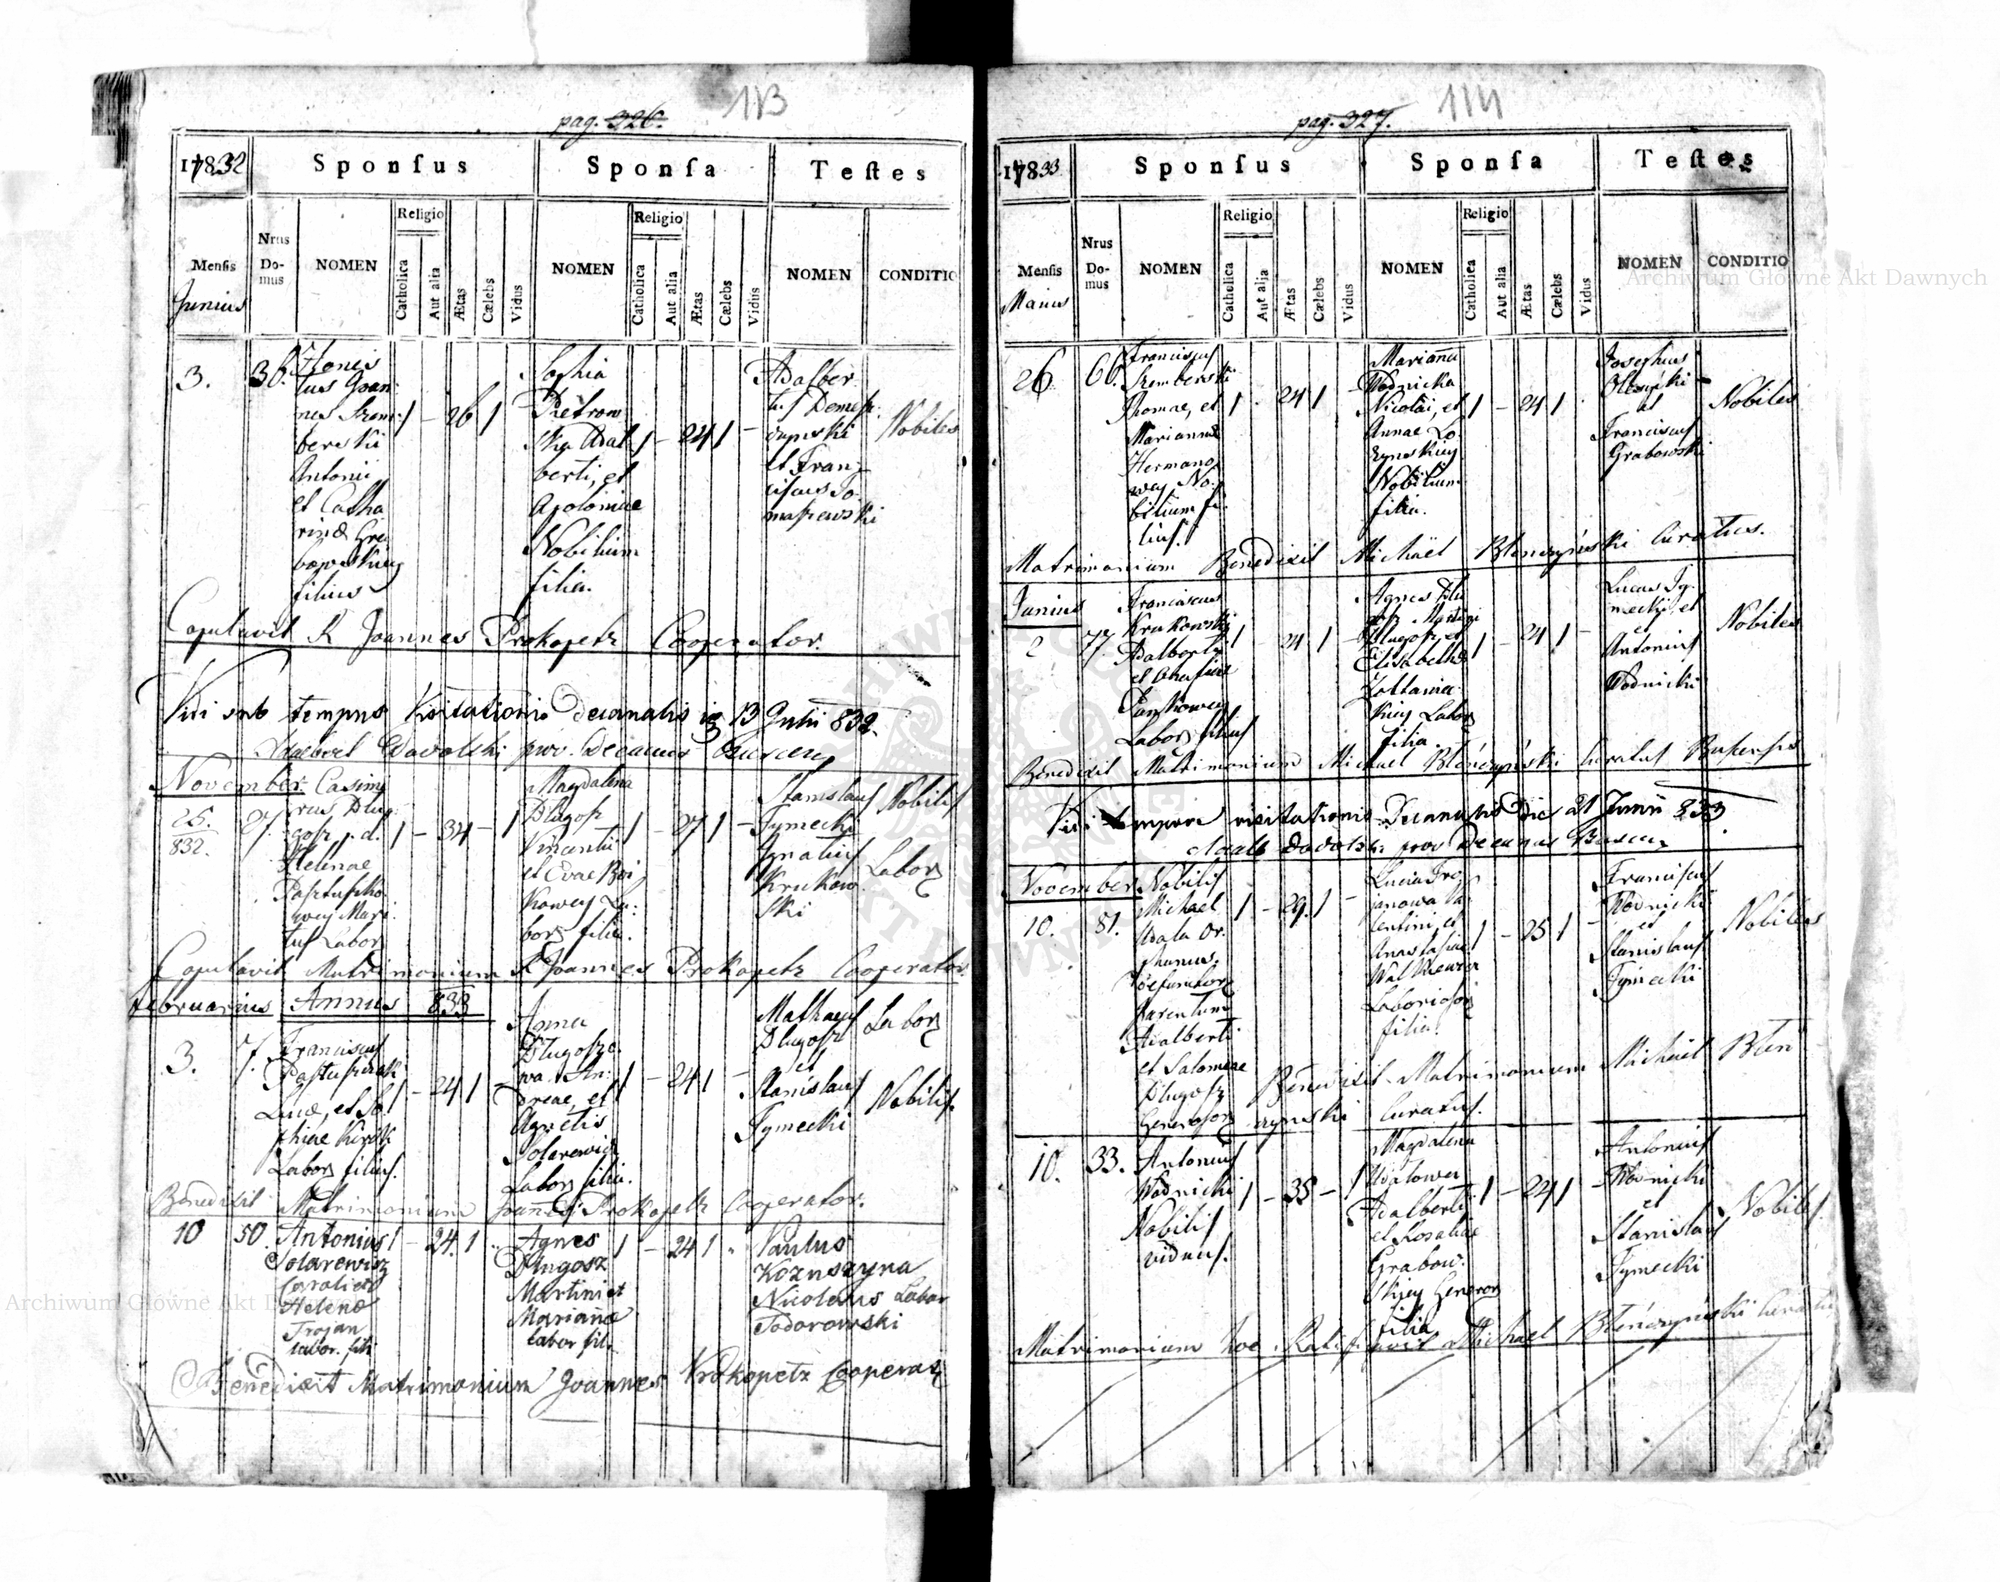 113
pag. 326.
1832
Sponſus
Sponſa
Teſtes
Menſis
Junius
Nrus
Do-
mus
NOMEN
Religio
Catholica
Aut alia
Ætas
Cælebs
Vidus
NOMEN
Religio
Catholica
Aut alia
Ætas
Cælebs
Vidus
NOMEN
CONDITIO
3.
36.
tus Joan
nes Szem:
berski
Antonii
et Catha
rinæ Gra
bowskiey
filius
1 - 26 1
Sophia
Pietrow
ska Adal
berti, et
Apoloniae
Nobilium
filia.
1 - 24 1 -
Adalber
tus
et Fran
ciscus To
maszewski
Nobiles
Copulavit R Joannes Prokopetz Cooperator.
Vidi sub tempus Visitationis Decanalis 13 Julii 832.
prov. Decanus
November
25.
832.
27.
Casimi
rus Dlug
gosz
Helenae
Pastuszko
wey Mari
tus Labor
1 - 34 - 1
Magdalena
Dlugosz
Vincentii
et Evae Boi
kowey La:
bor filia.
1 - 27 1 -
Stanislaus
Tymecki
Ignatius
Krukow
ski
Nobilis
Labor
Copulavit Matrimonium R Joannes Prokopetz Cooperator
februarius Annus 833
3.
7.
Franciscus
Pastuszak
Lucæ, et So
phiae
Labor filius.
1 - 24 1
Anna
Dlugoszo
wa An:
dreae, et
Agnetis
Solarewicz
Labor filia.
1 - 24 1 -
Mathaeus
Dlugosz
et
Stanislaus
Tymecki
Labor
Nobilis.
Benedixit Matrimonium Joannes Prokopetz Cooperator.
10
50.
Antonius
Solarewisz
Caroli et
Helenæ
Trojan
labor. fili
1 - 24. 1
Agnes
Dlugosz
Martini et
Marianæ
labor fil.
1 - 24 1
Paulus
Kozuszyna
Nicolaus Labor
Todorowski
Benedixit Matrimonium Joannes Prokopetz Cooperat
114
pag. 327.
1833
Sponſus
Sponſa
Teſtes
Menſis
Maius
Nrus
Do-
mus
NOMEN
Religio
Catholica
Aut alia
Ætas
Cælebs
Vidus
NOMEN
Religio
Catholica
Aut alia
Ætas
Cælebs
Vidus
NOMEN
CONDITIO
26.
66.
Franciscus
Szemberski
Thomae, et
Mariannæ
Hermano
wey No:
bilium fi
lius.
1 - 24 1
Marianna
Wodnicka
Nicolai, et
Annae Lo
zynskiey
Nobilium
filia.
1 - 24 1
Josephus
Olszewski
et
Franciscus
Grabowski
Nobiles
Matrimonium Benedixit Michael Blenczynski Curatus.
Junius
2
77.
Franciscus
Krukowski
Adalberti
et
Pankowey
Labor filius
1 - 24 1
Agnes Dlu
gosz Martini
Dlugosz, et
Elisabethæ
Zoltaniec
kiey Labor
filia.
1 - 24 1 -
Lucas Ty
mecki, et
et
Antonius
Wodnicki
Nobiles
Benedixit Matrimonium Michael Blenczynski Curatus
Vidi tempore visitationis Decanalis Die 21 Junii 833
prov Decanus
November
10.
51.
Nobilis
Michael
Wala Or
phanus
Defunctor
Parentum
Adalberti
et Salomeae
Dlugosz
Generosor
1 - 29. 1 -
Lucia Tro
janowa Va
lentini, et
Anastasiae
Laborioson
filia.
1 - 25 1 -
Franciscus
Wodnicki
et
Stanislaus
Tymecki
Nobiles
Benedixit Matrimonium Michael Blen
czynski Curatus.
10.
33.
Antonius
Wodnicki
Nobilis
viduus.
1 - 35 - 1
Magdalena
Adalberti
et Rosaliae
Grabow
skiey Generor
filia
1 - 24 1
Antonius
Wodnicki
et
Stanislaus
Tymecki
Nobiles.
Matrimonium hoc Michael Blenczynski Curatus
Archiwum Główne Akt Dawnych
Archiwum Główne Akt D